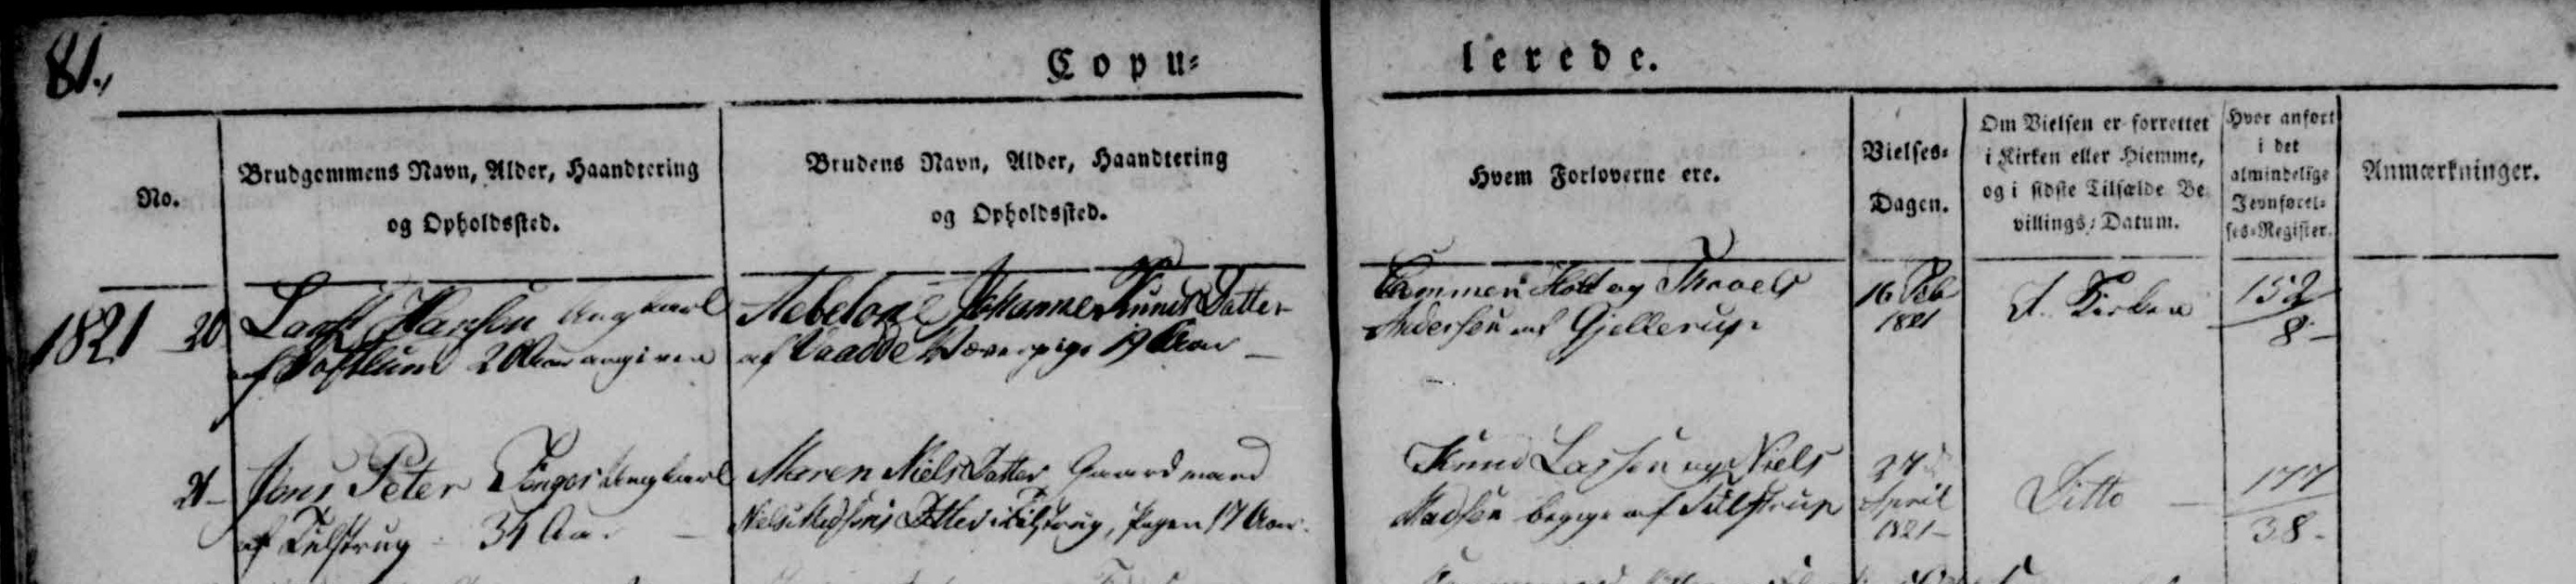 81.
Copu= lerede.
No.
Brudgommens Navn, Alder, Haandtering
og Opholdssted.
Brudens Navn, Alder, Haandtering
og Opholdssted.
Hvem Forloverne ere.
Vielses=
Dagen.
Om Vielsen er forrettet
i Kirken eller Hiemme,
og i sidste Tilfælde Be
villings=Datum.
Hvor anført
i det
almindelige
Jevnførel=
ses=Register.
Anmærkninger.
1821 20
Hansen Ungkarl
af angiven
Johanne Knuds Datter
af 19 Aar
og Troels
Andersen af Gjellerup
16 Feb
1821
I Kirken
152
8-
21-
Jens Peter Ungkarl
af Tulstrup - 34 Aar
Maren Niels Datter Gaardmand
Niels Madsens Datter i Tulstrup, Pigen 17 Aar.
Knud Lassen og Niels
Madsen begge af Tulstrup
27
April
1821-
Ditto
177
38-